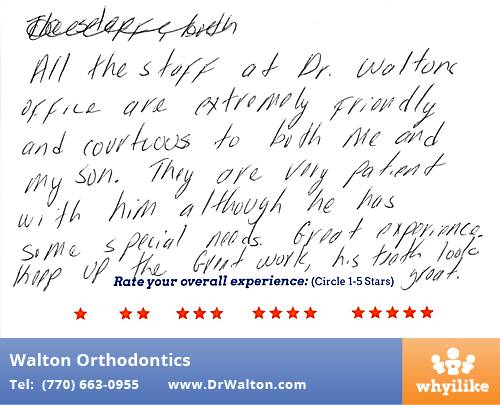 both
All the staff at Dr. Waltons
office are extremely friendly
and courtious to both me and
my son. They are very patient
with him although he has
some special needs. Great experience.
Keep up the Great work, his teeth look
great.
Rate your overall experience: (Circle 1-5 Stars)
Walton Orthodontics
Tel: (770) 663-0955 www.DrWalton.com
whyilike